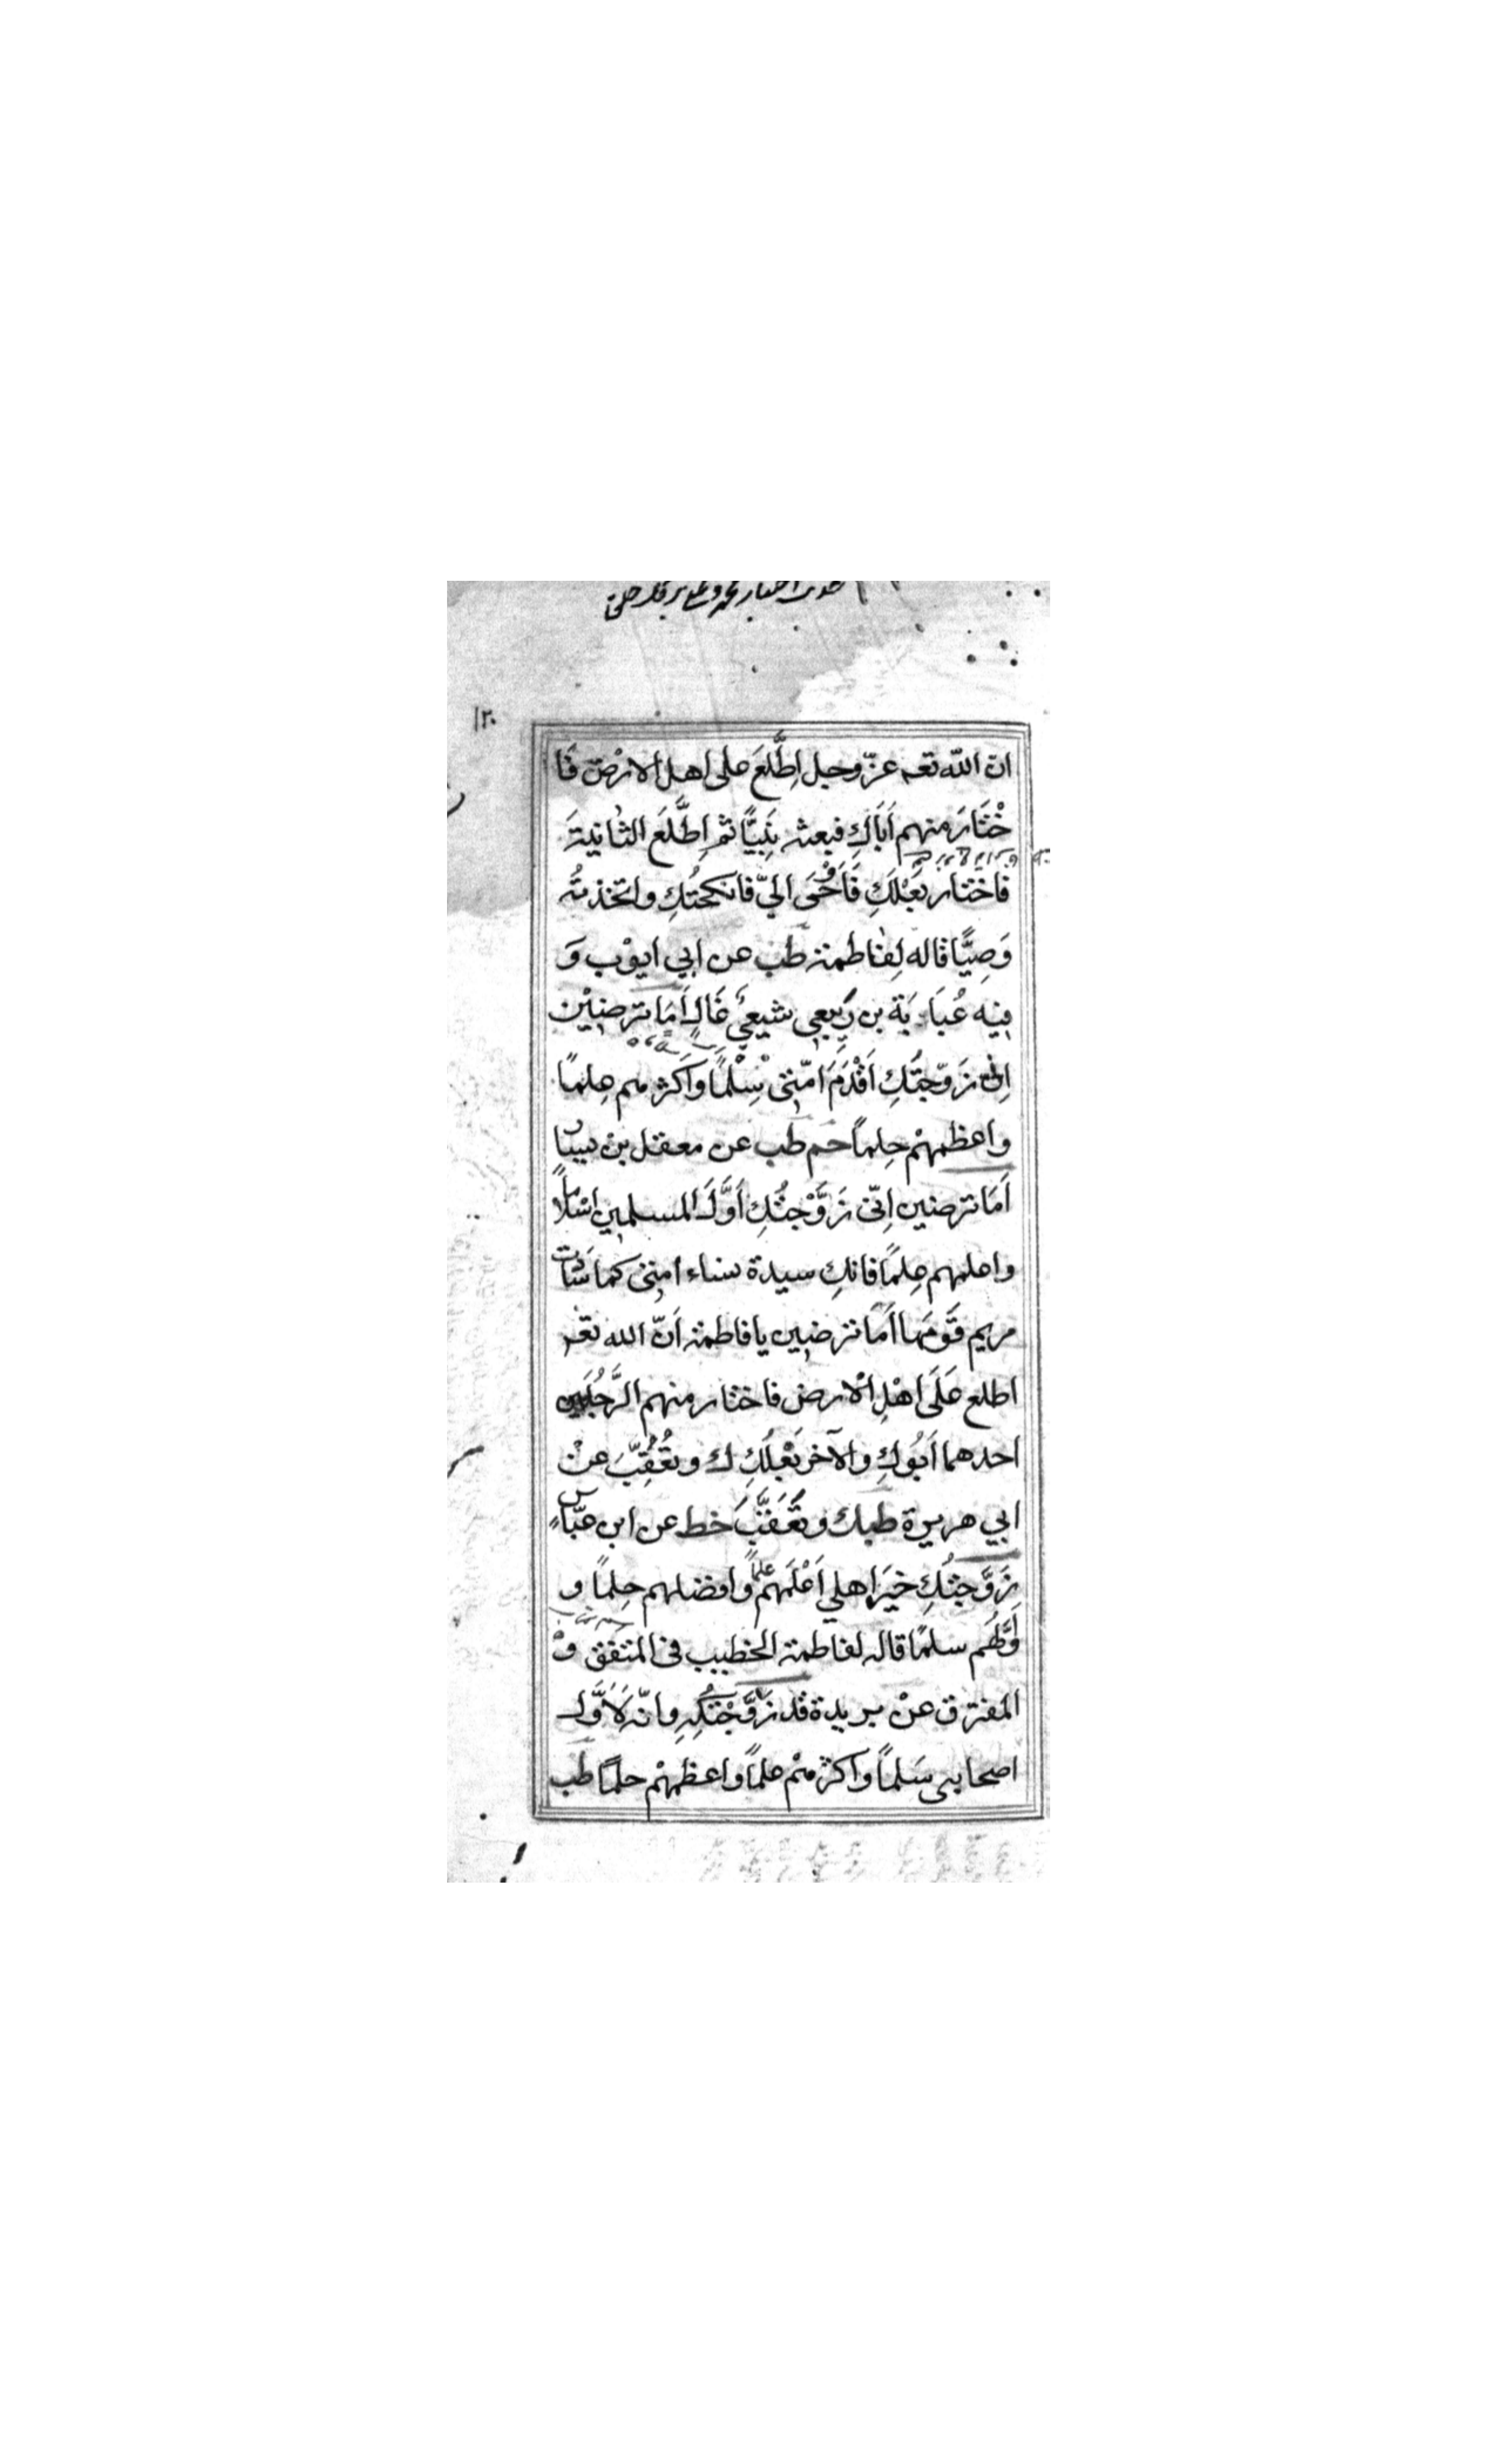 ١٢٠
ان الله تعه عزّ وجل اِطَّلَعَ على اهل الارْض فَا
خْتَارَ منهم اَبَاكِ فبعثه نَبِيًّا ثم اِطَّلَعَ الثانِيَةَ
فاختار بَعْلَكِ فَاَوْحَى اليّ فانكحتُكِ واتخذتُه
وَصِيًّا قاله لِفاطمة طب عن ابي ايوْب وَ
فيه عُبَايَة بن رِبْعِي شيعيٌ غَالٍ اَمَا ترضيْن
اِنّي زَوّجتُكِ اَقْدَمَ امّتي سِلْمًا واَكثرهم عِلمًا
واعظمهمْ حِلمًا حم طب عن معقل بن يسار
اَمَا ترضين اِنّي زَوَّجْتُكِ اَوَّلَ المسلمين اسْلامًا
واعلمهم عِلمًا فانكِ سيدة نساء امتي كما سَادَت
مريم قَوْمَها اَمَا ترضين يا فاطمة اَنّ الله تعه
اطلع عَلَى اهْلِ الْارض فاختار منهم الرَّجُلَين
احدهما اَبُوكِ والآخر بَعْلُكِ ك وتُعُقِّبَ عنْ
ابي هريرة طب ك وتُعُقِّبَ خط عن ابن عبّاسٍ
زَوَّجتُكِ خَيْرَ اهلي اَعْلَمَهُمْ علمًا وافضلهم حِلمًا و
اَوَّلَهُم سلمًا قاله لفاطمة الخطيب في المتفق وْ
المفترق عنْ بريدة قد زَوَّجْتُكِهِ وانّه لَاَوَّلُ
اصحابي سَلمًا واكثرهمْ علمًا واعظمهمْ حلمًا طب